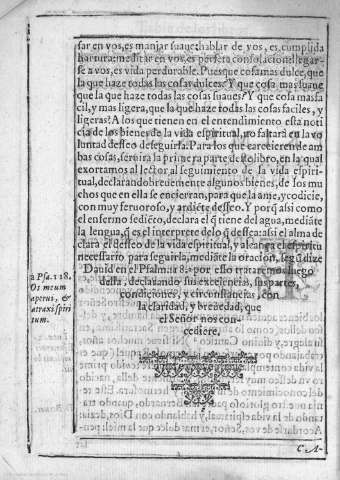 sar en vos, es manjar suaue: hablar de vos, es cumplida
hartura: meditar en vos, es perfeta consolacion: llegar-
se a vos, es vida perdurable. Pues que cosa mas dulce, que
la que haze todas las cosas dulces? Y que cosa mas suaue
que la que haze todas las cosas suaues? Y que cosa mas fa
cil, y mas ligera, que la que haze todas las cosas faciles, y
ligeras? A los que tienen en el entendimiento esta noti
cia de los bienes de la vida espiritual, no faltarà en la vo
luntad desseo de seguirla. Para los que carecieren de am
bas cosas, seruira la primera parte deste libro, en la qual
exortamos al lector al seguimiento de la vida espiri-
tual, declarando breuemente algunos bienes, de los mu
chos que en ella se encierran, para que la ame, y codicie,
con muy feruoroso, y ardiẽte desseo. Y porq̃ assi como
el enfermo sediẽto, declara el q̃ tiene del agua, mediãte
la lengua, q̃ es el interprete de lo q̃ dessea: assi el alma de
clara el desseo de la vida espiritual, y alcança el espiritu
necessario para seguirla, mediãte la oracion, segũ dize
Dauid en el Psalm. 118. por esso trataremos luego
della, declarando sus excelencias, sus partes,
condiciones, y circunstancias, con
la claridad, y breuedad, que
el Señor nos con-
cediere.
a Psa. 118.
Os meum
aperui, &
atraxi spiri
tum.
C A-